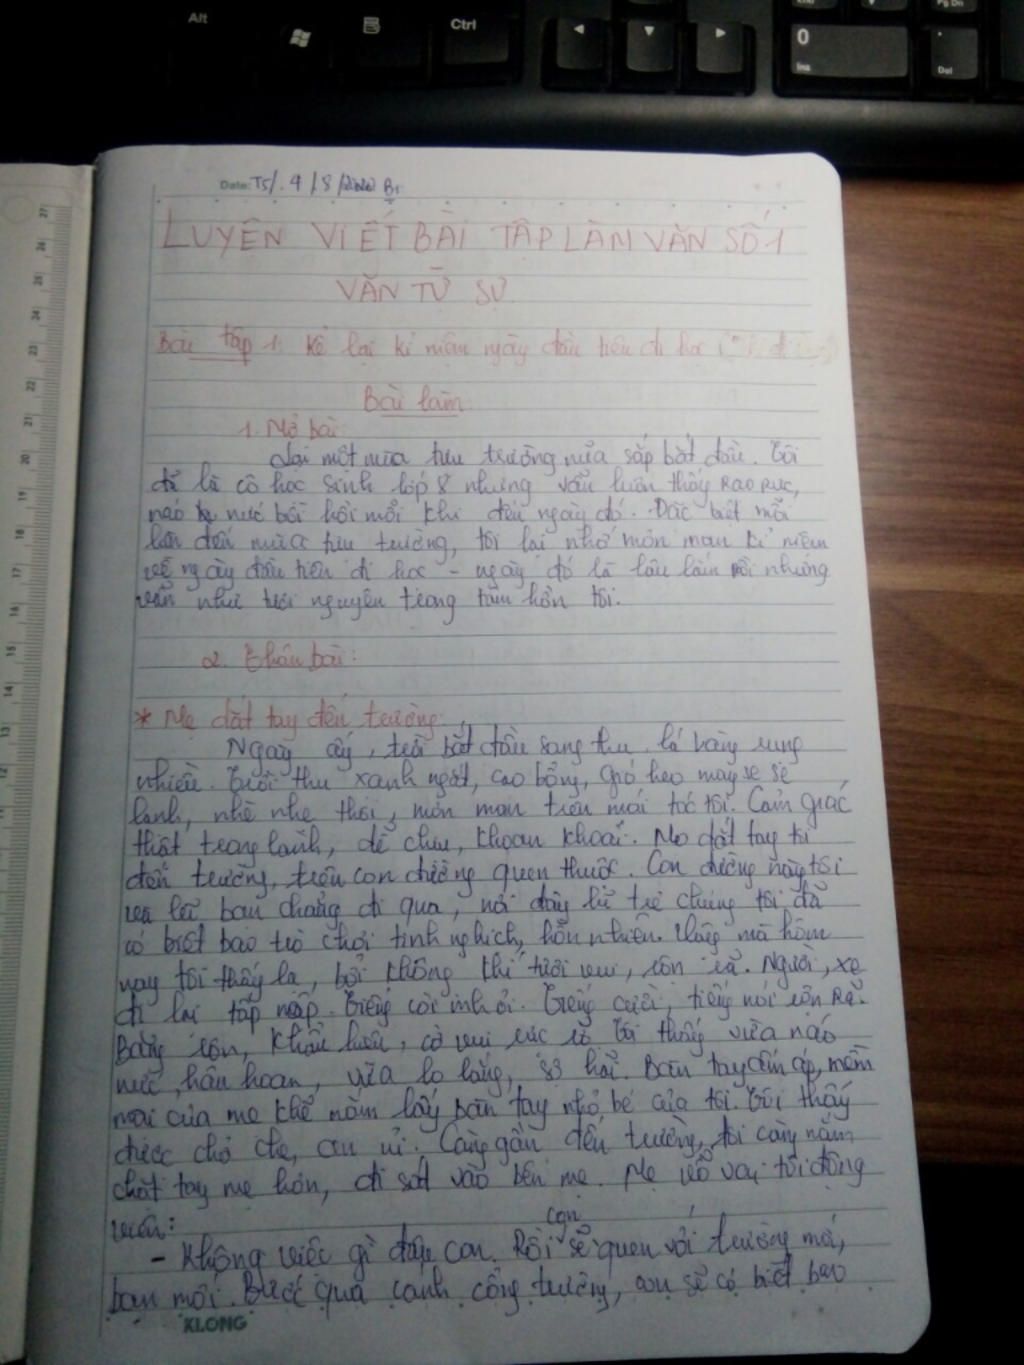 Alt
Ctrl
0
Ins
Del
Pg Dn
Date: T5/. 4 / 8 /2022
LUYỆN VIẾT BÀI TẬP LÀM VĂN SỐ 1
VĂN TỰ SỰ
Bài tập 1: Kể lại kỉ niệm ngày đầu tiên đi học
Bài làm
1. Mở bài:
Lại một mùa tựu trường nữa sắp bắt đầu. Tôi
đã là cô học sinh lớp 8 nhưng vẫn luôn thấy rạo rực,
náo nức bồi hồi mỗi khi đến ngày đó. Đặc biệt mỗi
lần đến mùa tựu trường, tôi lại nhớ mơn man kỉ niệm
về ngày đầu tiên đi học - ngày đó là lâu lắm rồi nhưng
vẫn như tươi nguyên trong tâm hồn tôi.
2. Thân bài:
* Mẹ dắt tay đến trường:
Ngày ấy, trời bắt đầu sang thu, lá vàng rụng
nhiều. Trời thu xanh ngắt, cao bổng, gió heo may se se
lạnh, nhè nhẹ thổi, mơn man trên mái tóc tôi. Cảm giác
thật trong lành, dễ chịu, khoan khoái. Mẹ dắt tay tôi
đến trường, trên con đường quen thuộc. Con đường này tôi
và lũ bạn chẳng đi qua, nơi đây lũ trẻ chúng tôi đã
có biết bao trò chơi tinh nghịch, hồn nhiên. Vậy mà hôm
nay tôi thấy lạ, bởi không khí tươi vui, rộn rã. Người, xe
đi lại tấp nập. Tiếng còi inh ỏi. Tiếng cười, tiếng nói rộn rã.
Băng rôn, khẩu hiệu, cờ vui rực rỡ. Tôi thấy vừa náo
nức, hân hoan, vừa lo lắng, sợ hãi. Bàn tay ấm áp, mềm
mại của mẹ khẽ nắm lấy bàn tay nhỏ bé của tôi. Tôi thấy
được chở che, an ủi. Càng gần đến trường, tôi càng nắm
chặt tay mẹ hơn, đi sát vào bên mẹ. Mẹ vỗ vai tôi động
viên:
- Không việc gì đâu con. Rồi con sẽ quen với trường mới,
bạn mới. Bước qua cánh cổng trường, con sẽ có biết bao
KLONG